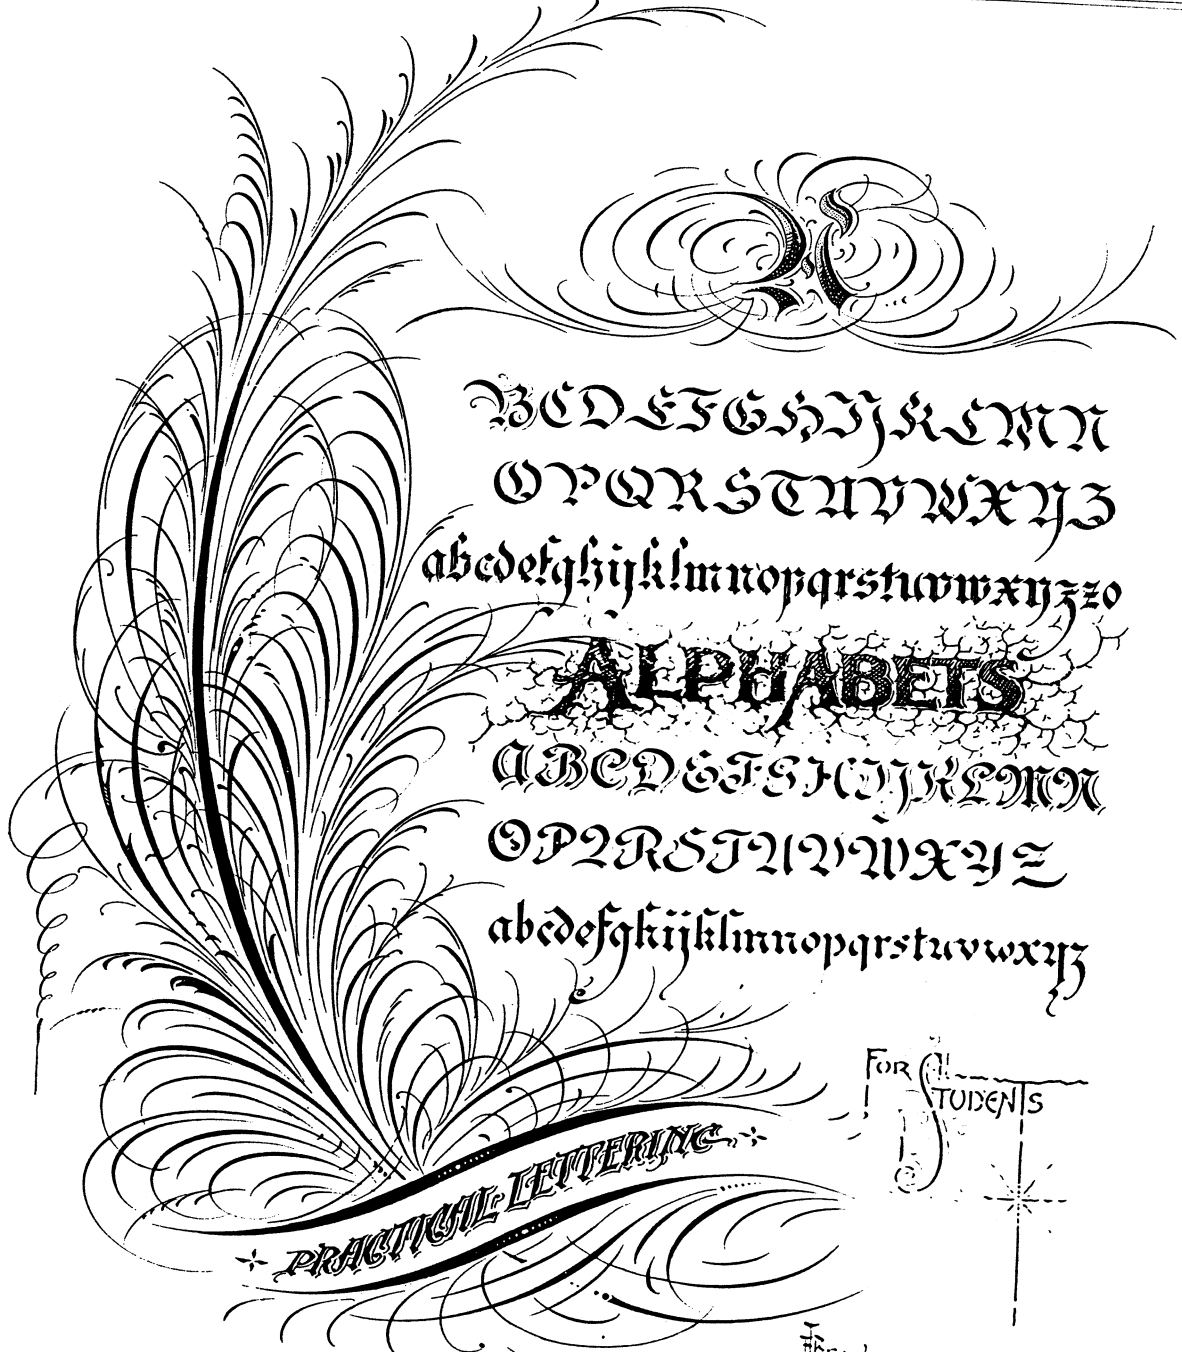 A
BCDEFGHIJKLMN
OPQRSTUVWXYZ
abcdefghijklmnopqrstuvwxyzzo
ALPHABETS
ABCDEFGHIJKLMN
OPQRSTUVWXYZ
abcdefghijklmnopqrstuvwxyz
FOR
STUDENTS
PRACTICAL LETTERING